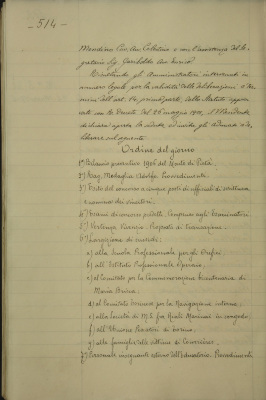 - 514 -
Mondino Cav. Avv. Celestino e con l'assistenza del Se-
gretario Sig. Garibaldo
Risultando gli Amministratori intervenuti in
numero legale per la validità delle deliberazioni a ter-
mini dell'art. 14, prima parte, dello Statuto appro-
vato con R. Decreto del 26 maggio 1901, il Presidente
dichiara aperta la seduta ed invita gli adunati a de-
liberare sul seguente
Ordine del giorno
1°) Bilancio preventivo 1906 del Monte di Pietà.
2°) Rag. Medaglia Adolfo. Provvedimenti.
3°) Esito del concorso a cinque posti di ufficiali di scrittura
e nomina dei vincitori.
4°) Esami di concorso predetti. Compenso agli Esaminatori.
5°) Vertenza Vicenza. Proposta di transazione.
6°) Largizione di sussidi:
a) alla Scuola Professionale per gli Orefici;
b) all'Istituto Professionale Operaio;
c) al Comitato per la Commemorazione Centenaria di
Maria
d) al Comitato per la Navigazione interna;
e) alla Società di M. S. fra Reali Marinai in congedo;
f) all'Unione Pescatori di Torino;
g) alle famiglie delle vittime di Courrières.
7°) Personale insegnante esterno dell'Educatorio. Provvedimenti.